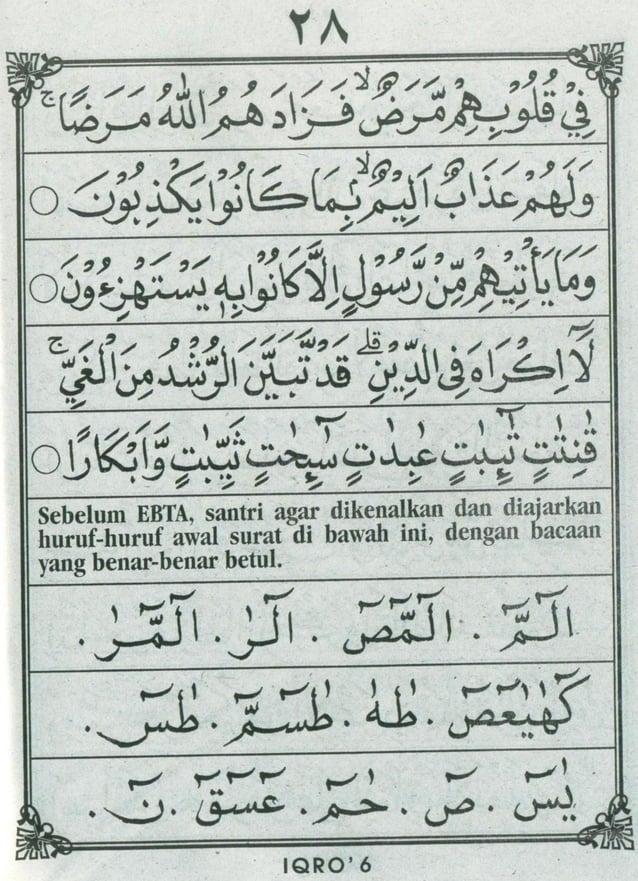 ٢٨
فِيْ قُلُوْبِهِمْ مَّرَضٌ ۙ فَزَادَ هُمُ اللّٰهُ مَرَضًا ۚ
وَلَهُمْ عَذَابٌ اَلِيْمٌ ۙ بِمَا كَانُوْا يَكْذِبُوْنَ ○
وَمَا يَأْتِيْهِمْ مِّنْ رَّسُوْلٍ اِلَّا كَانُوْا بِهٖ يَسْتَهْزِءُوْنَ ○
لَآ اِكْرَاهَ فِى الدِّيْنِ ۗ قَدْ تَّبَيَّنَ الرُّشْدُ مِنَ الْغَيِّ ۚ
قٰنِتٰتٍ تٰۤئِبٰتٍ عٰبِدٰتٍ سٰۤئِحٰتٍ ثَيِّبٰتٍ وَّاَبْكَارًا ○
Sebelum EBTA, santri agar dikenalkan dan diajarkan
huruf-huruf awal surat di bawah ini, dengan bacaan
yang benar-benar betul.
الٓـمّٓ . الٓمّٓصٓ . الٓـرٰ . الٓمّٓرٰ .
كٓهٰيٰعٓصٓ . طٰهٰ . طٰسٓمّٓ . طٰسٓ .
يٰسٓ . صٓ . حٰمٓ . عٓسٓقٓ . نٓ .
IQRO' 6